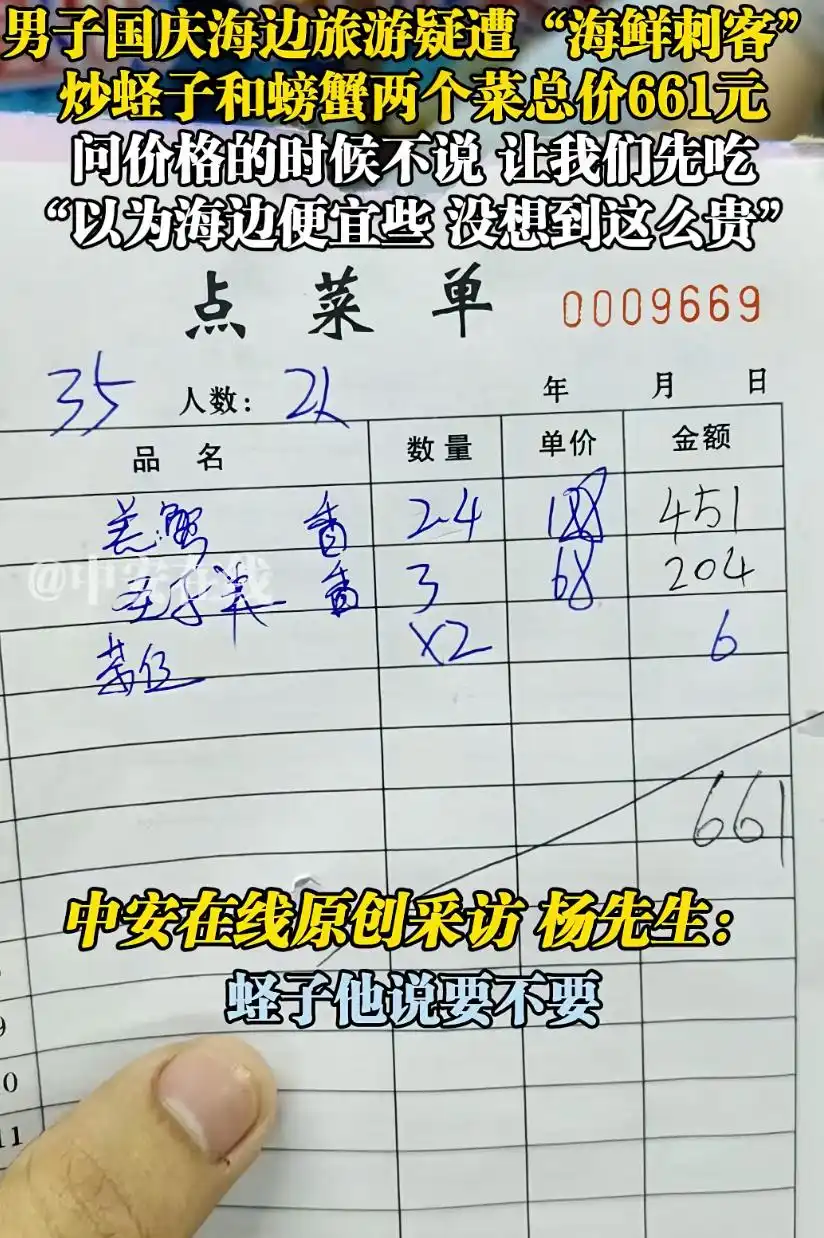 男子国庆海边旅游疑遭“海鲜刺客”
炒蛏子和螃蟹两个菜总价661元
问价格的时候不说 让我们先吃
“以为海边便宜些 没想到这么贵”
点菜单 0009669
35 人数： 2人 年 月 日
品名 数量 单价 金额
羔蟹 2.4 188 451
@中安在线
3 68 204
茶位 X2 6
661
中安在线原创采访 杨先生：
蛏子他说要不要
9
10
11